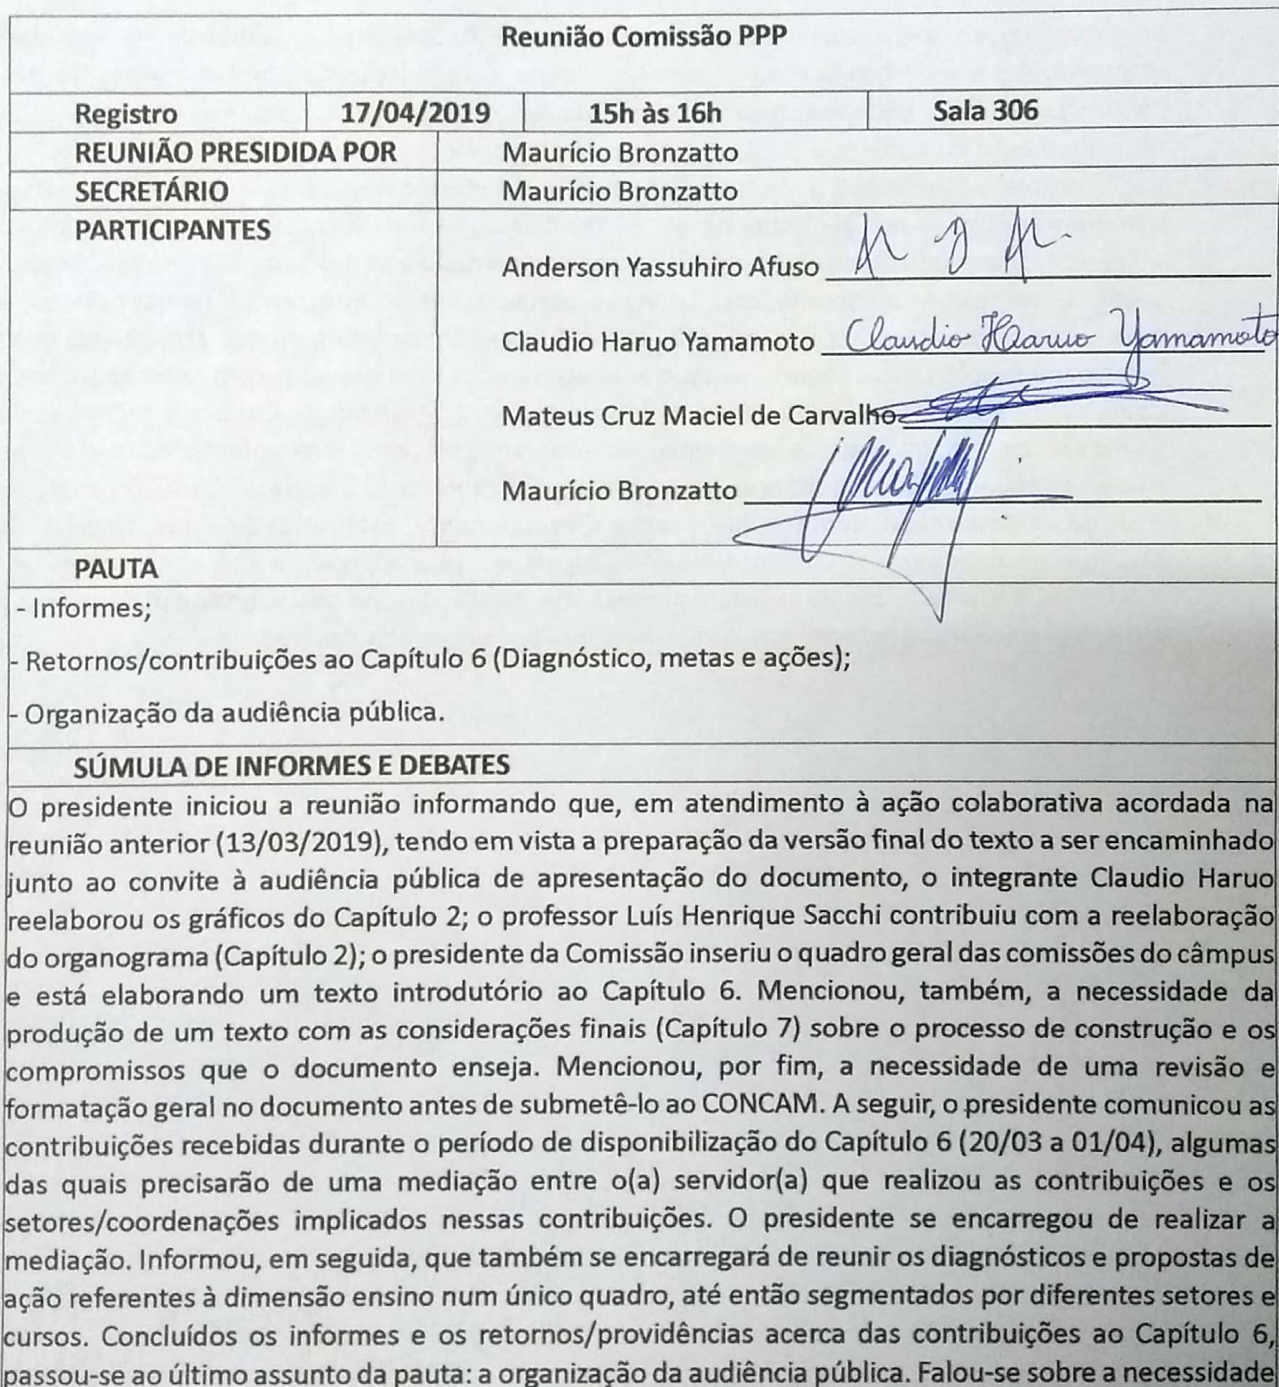 Reunião Comissão PPP
Registro 17/04/2019 15h às 16h Sala 306
REUNIÃO PRESIDIDA POR Maurício Bronzatto
SECRETÁRIO Maurício Bronzatto
PARTICIPANTES
Anderson Yassuhiro Afuso
Claudio Haruo Yamamoto Claudio Haruo Yamamoto
Mateus Cruz Maciel de Carvalho
Maurício Bronzatto
PAUTA
- Informes;
- Retornos/contribuições ao Capítulo 6 (Diagnóstico, metas e ações);
- Organização da audiência pública.
SÚMULA DE INFORMES E DEBATES
O presidente iniciou a reunião informando que, em atendimento à ação colaborativa acordada na
reunião anterior (13/03/2019), tendo em vista a preparação da versão final do texto a ser encaminhado
junto ao convite à audiência pública de apresentação do documento, o integrante Claudio Haruo
reelaborou os gráficos do Capítulo 2; o professor Luís Henrique Sacchi contribuiu com a reelaboração
do organograma (Capítulo 2); o presidente da Comissão inseriu o quadro geral das comissões do câmpus
e está elaborando um texto introdutório ao Capítulo 6. Mencionou, também, a necessidade da
produção de um texto com as considerações finais (Capítulo 7) sobre o processo de construção e os
compromissos que o documento enseja. Mencionou, por fim, a necessidade de uma revisão e
formatação geral no documento antes de submetê-lo ao CONCAM. A seguir, o presidente comunicou as
contribuições recebidas durante o período de disponibilização do Capítulo 6 (20/03 a 01/04), algumas
das quais precisarão de uma mediação entre o(a) servidor(a) que realizou as contribuições e os
setores/coordenações implicados nessas contribuições. O presidente se encarregou de realizar a
mediação. Informou, em seguida, que também se encarregará de reunir os diagnósticos e propostas de
ação referentes à dimensão ensino num único quadro, até então segmentados por diferentes setores e
cursos. Concluídos os informes e os retornos/providências acerca das contribuições ao Capítulo 6,
passou-se ao último assunto da pauta: a organização da audiência pública. Falou-se sobre a necessidade